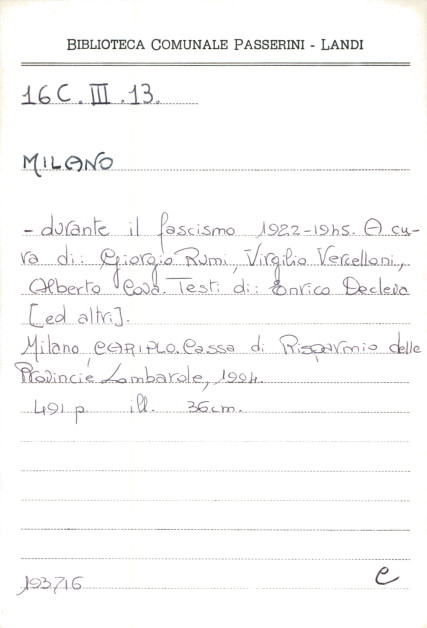 BIBLIOTECA COMUNALE PASSERINI - LANDI
16 C. III .13.
MILANO
- durante il fascismo 1922-1945. A cu-
ra di: Giorgio Rumi, Virgilio Vercelloni,
Alberto Cova. Testi di: Enrico Decleva
[ed altri].
Milano, CARIPLO. Cassa di Risparmio delle
Provincie Lombarde, 1994.
491 p. ill. 36cm.
193716
e